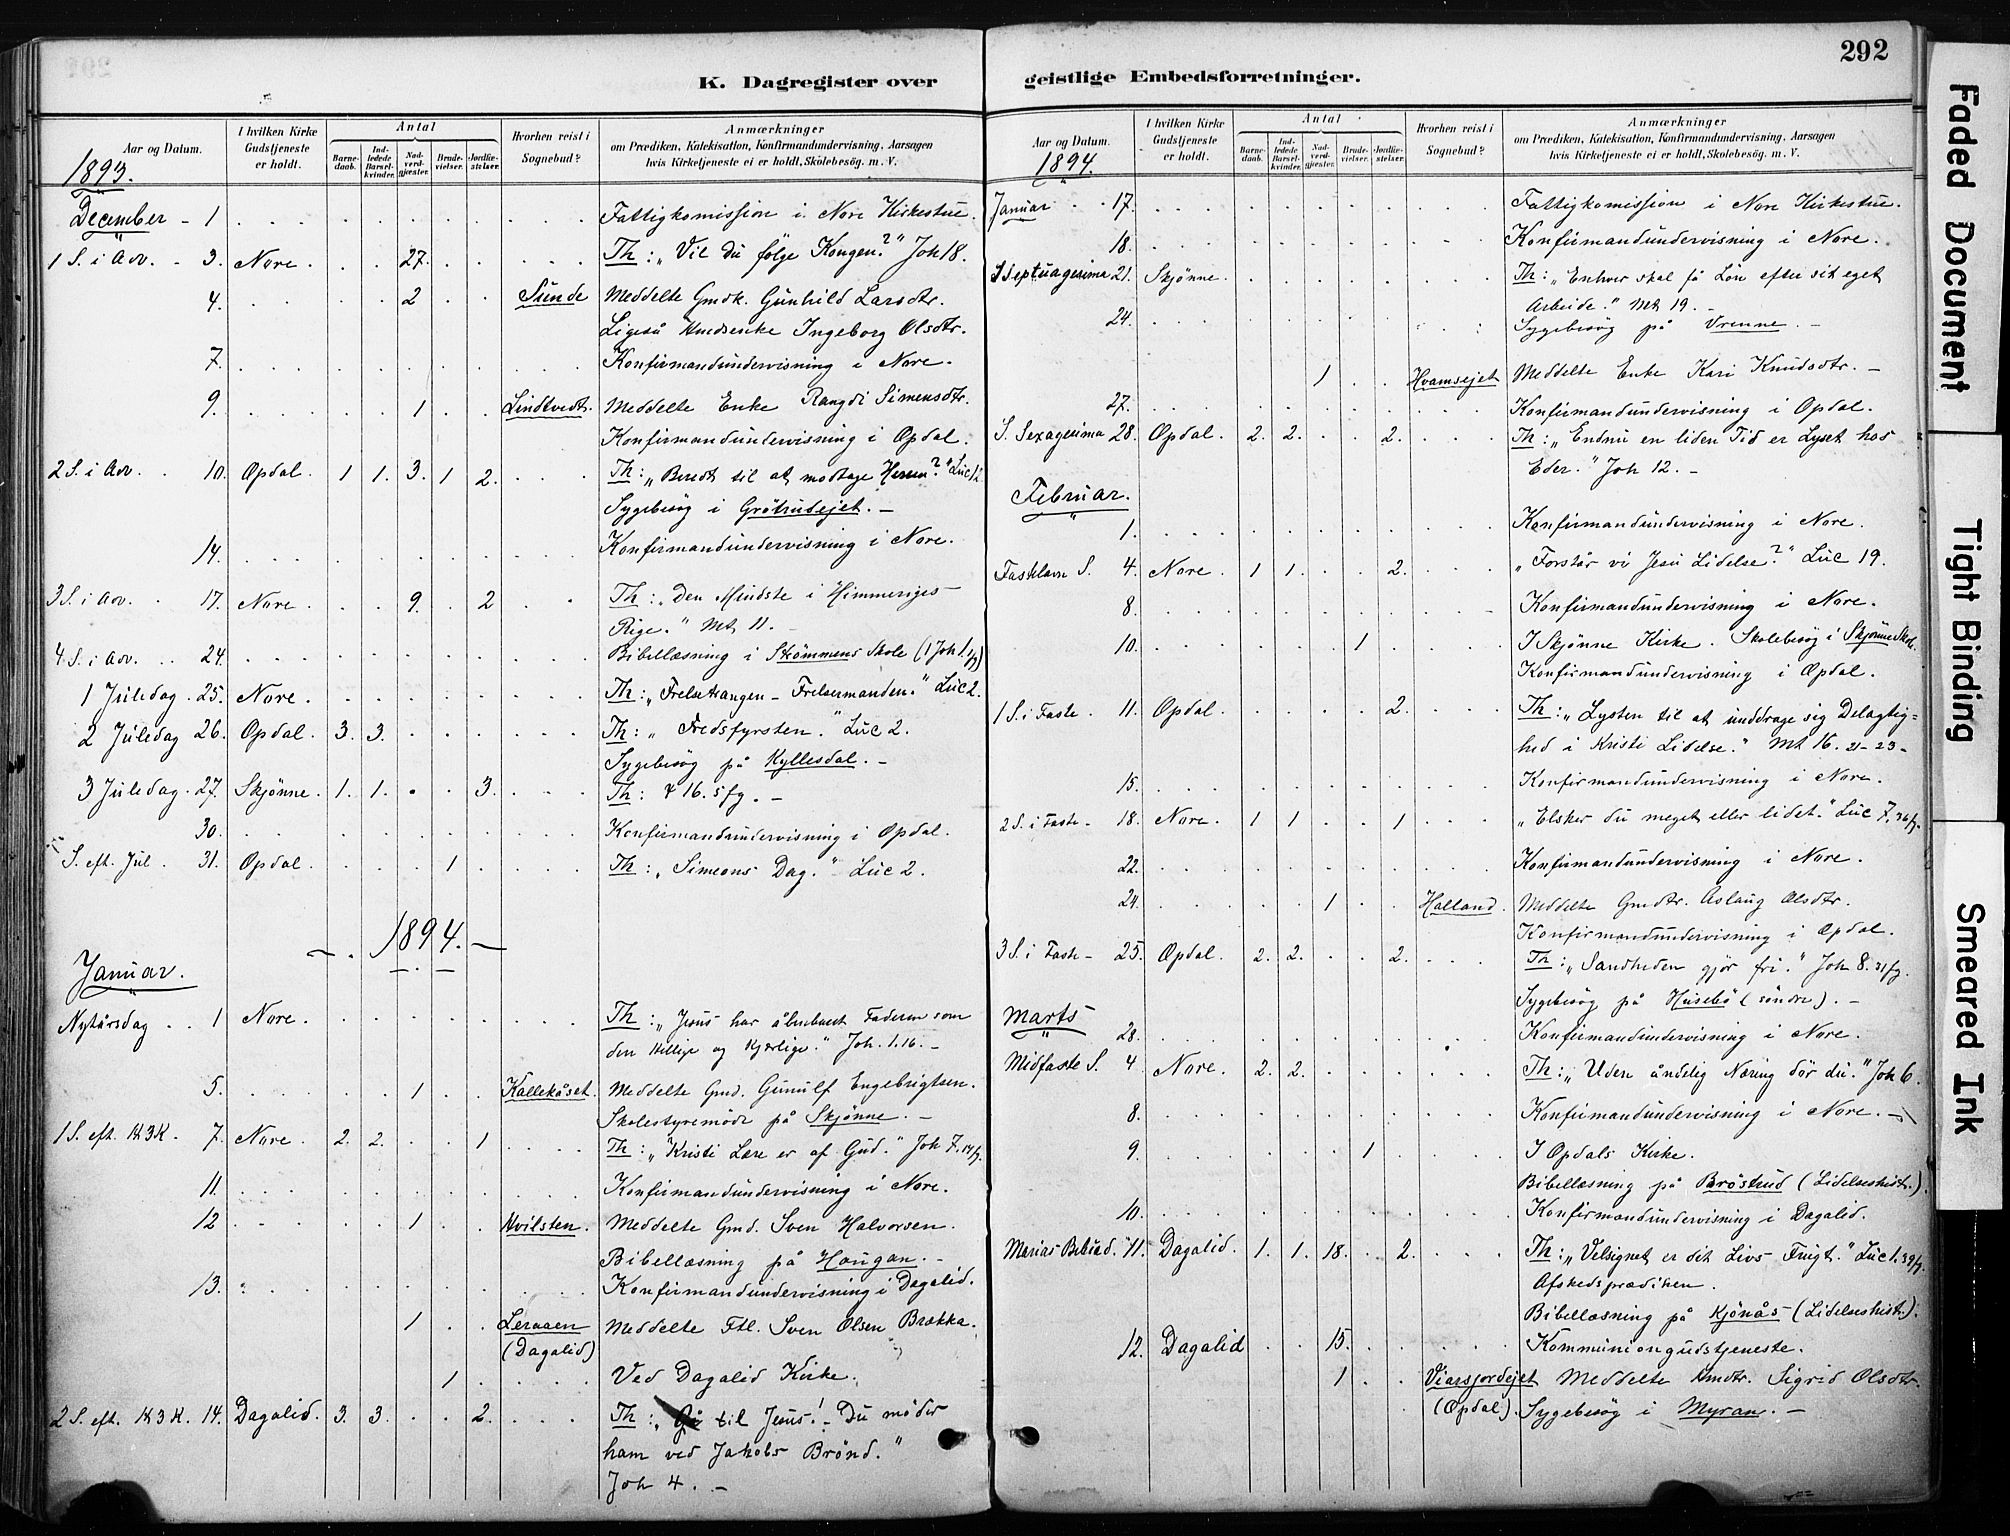 K. Dagregister over
Aar og Datum. I hvilken Kirke Gudstjeneste er holdt. Antal Barnedaab. Indledede Barselkvinder. Nadverdgjæster. Brudevielser. Jordfæstelser. Hvorhen reist i Sognebud? Anmærkninger om Prædiken, Katekisation, Konfirmandundervisning, Aarsagen hvis Kirketjeneste ei er holdt, Skolebesøg. m. V.
1893.
December - 1 Fattigkomission i Nore Kirkestue.
1 S. i Adv. - 3. Nore. 27. Th: „Vil du følge Kongen?" Joh 18.
4. 2 Sunde Meddelte Gmdk. Gunhild Larsdtr.
Ligeså Huedsenke Ingeborg Olsdtr.
7. Konfirmandundervisning i Nore.
9. 1 Lindtvedt. Meddelte Enke Rangdi Simensdtr.
Konfirmandundervisning i Opdal.
2 S. i Adv. 10. Opdal. 1 1. 3. 1 2. Th: „Beredt til at modtage Herren?" Luc 12
Sygebesøg i Grötrudejet. -
14. Konfirmandundervisning i Nore.
3 S. i Adv. 17. Nore. 9. 2 Th: „Den Mindste i Himmeriges
Rige." Mt 11. -
4 S. i Adv. 24. Bibellæsning i Strömmens Skole (1 Joh 1. 1/7)
1 Juledag. 25. Nore. Th: „Frelsetrangen - Frelsermanden." Luc 2.
2 Juledag 26. Opdal. 3. 3. Th: „Fredsfyrsten." Luc 2.
Sygebesøg på Kyllesdal. -
3 Juledag. 27. Skjönne. 1. 1. 3. Th: 16. 5 fg. -
30. Konfirmandundervisning i Opdal.
S. eft. Jul. 31. Opdal. 1 Th: „Simeons Dag." Luc 2.
1894.
Januar.
Nytårsdag 1 Nore. Th: „Jesus har åbenbaret Faderen som
den Hellige og Kjærlige." Joh. 1. 16. -
5. 1 Kallekåset. Meddelte Gmd. Gunulf Engebrigtsen.
Skolestyremöde på Skjönne. -
1 S. eft. H3K. 7. Nore. 2. 2. 1 Th: „Kristi Lære er af Gud." Joh 7. 14 fg.
11. Konfirmandundervisning i Nore.
12 1 Hvilsten. Meddelte Gmd. Sven Halvorsen.
Bibellæsning på Haugan. -
13. Konfirmandundervisning i Dagalid.
1 Leraaen Meddelte Ftl. Sven Olsen Brækka.
(Dagalid)
1 Ved Dagalid Kirke.
2 S. eft. H3K. 14. Dagalid. 3. 3. 2. Th: „Gå til Jesus! - Du möder
ham ved Jakobs Brönd."
Joh 4. -
geistlige Embedsforretninger.
292
Aar og Datum. I hvilken Kirke Gudstjeneste er holdt. Antal Barnedaab. Indledede Barselkvinder. Nadverdgjæster. Brudevielser. Jordfæstelser. Hvorhen reist i Sognebud? Anmærkninger om Prædiken, Katekisation, Konfirmandundervisning, Aarsagen hvis Kirketjeneste ei er holdt, Skolebesøg. m. V.
1894.
Januar 17. Fattigkomission i Nore Kirkestue.
18. Konfirmandundervisning i Nore.
S Septuagesima 21. Skjönne. Th: „Enhver skal få Lön efter sit eget
Arbeide." Mt 19. -
24. Sygebesög på Vrenne. -
1 Hvamsejet Meddelte Enke Kari Knudsdtr. -
27. Konfirmandundervisning i Opdal.
S. Sexagesima 28. Opdal. 2. 2. 2. Th: „Endnu en liden Tid er Lyset hos
Eder." Joh 12. -
Februar.
1. Konfirmandundervisning i Nore.
Fastelavn S. 4. Nore. 1 1. 2. „Forstår vi Jesu Lidelse?" Luc 19.
8. Konfirmandundervisning i Nore.
10. 1 I Skjönne Kirke. Skolebesög i Skjönne Skole.
Konfirmandundervisning i Opdal.
1 S. i Faste. 11. Opdal. 2. Th: „Lysten til at unddrage sig Delagtig=
hed i Kristi Lidelse." Mt 16. 21-23-
15. Konfirmandundervisning i Nore.
2 S. i Faste - 18. Nore. 1 1 1 „Elsker du meget eller lidet." Luc 7. 36 fg.
22. Konfirmandundervisning i Nore.
24. 1 Halland. Meddelte Gmdtr. Aslaug Olsdtr.
Konfirmandundervisning i Opdal.
3 S. i Faste - 25. Opdal. 2. 2. 2. Th: „Sandheden gjör fri." Joh 8. 31 fg.
Sygebesög på Husebö (söndre). -
Marts
28. Konfirmandundervisning i Nore.
Midfaste S. 4 Nore. 2. 2. Th: „Uden åndelig Næring dör du." Joh 6.
8. Konfirmandundervisning i Nore. -
9. 1 I Opdals Kirke.
Bibellæsning på Bröstrud (Lidelseshist.).
10. Konfirmandundervisning i Dagalid.
Marias Bebud. 11. Dagalid. 1. 1. 18. 2. Th: „Velsignet er dit Livs Frugt." Luc 1. 39 fg.
Afskedsprædiken.
Bibellæsning på Kjönås (Lidelseshist.).
12. Dagalid 15. Kommuniongudstjeneste.
1 Viersjordejet Meddelte Hmdtr. Sigrid Olsdtr.
(Opdal). Sygebesög i Myran. -
Faded Document
Tight Binding
Smeared Ink